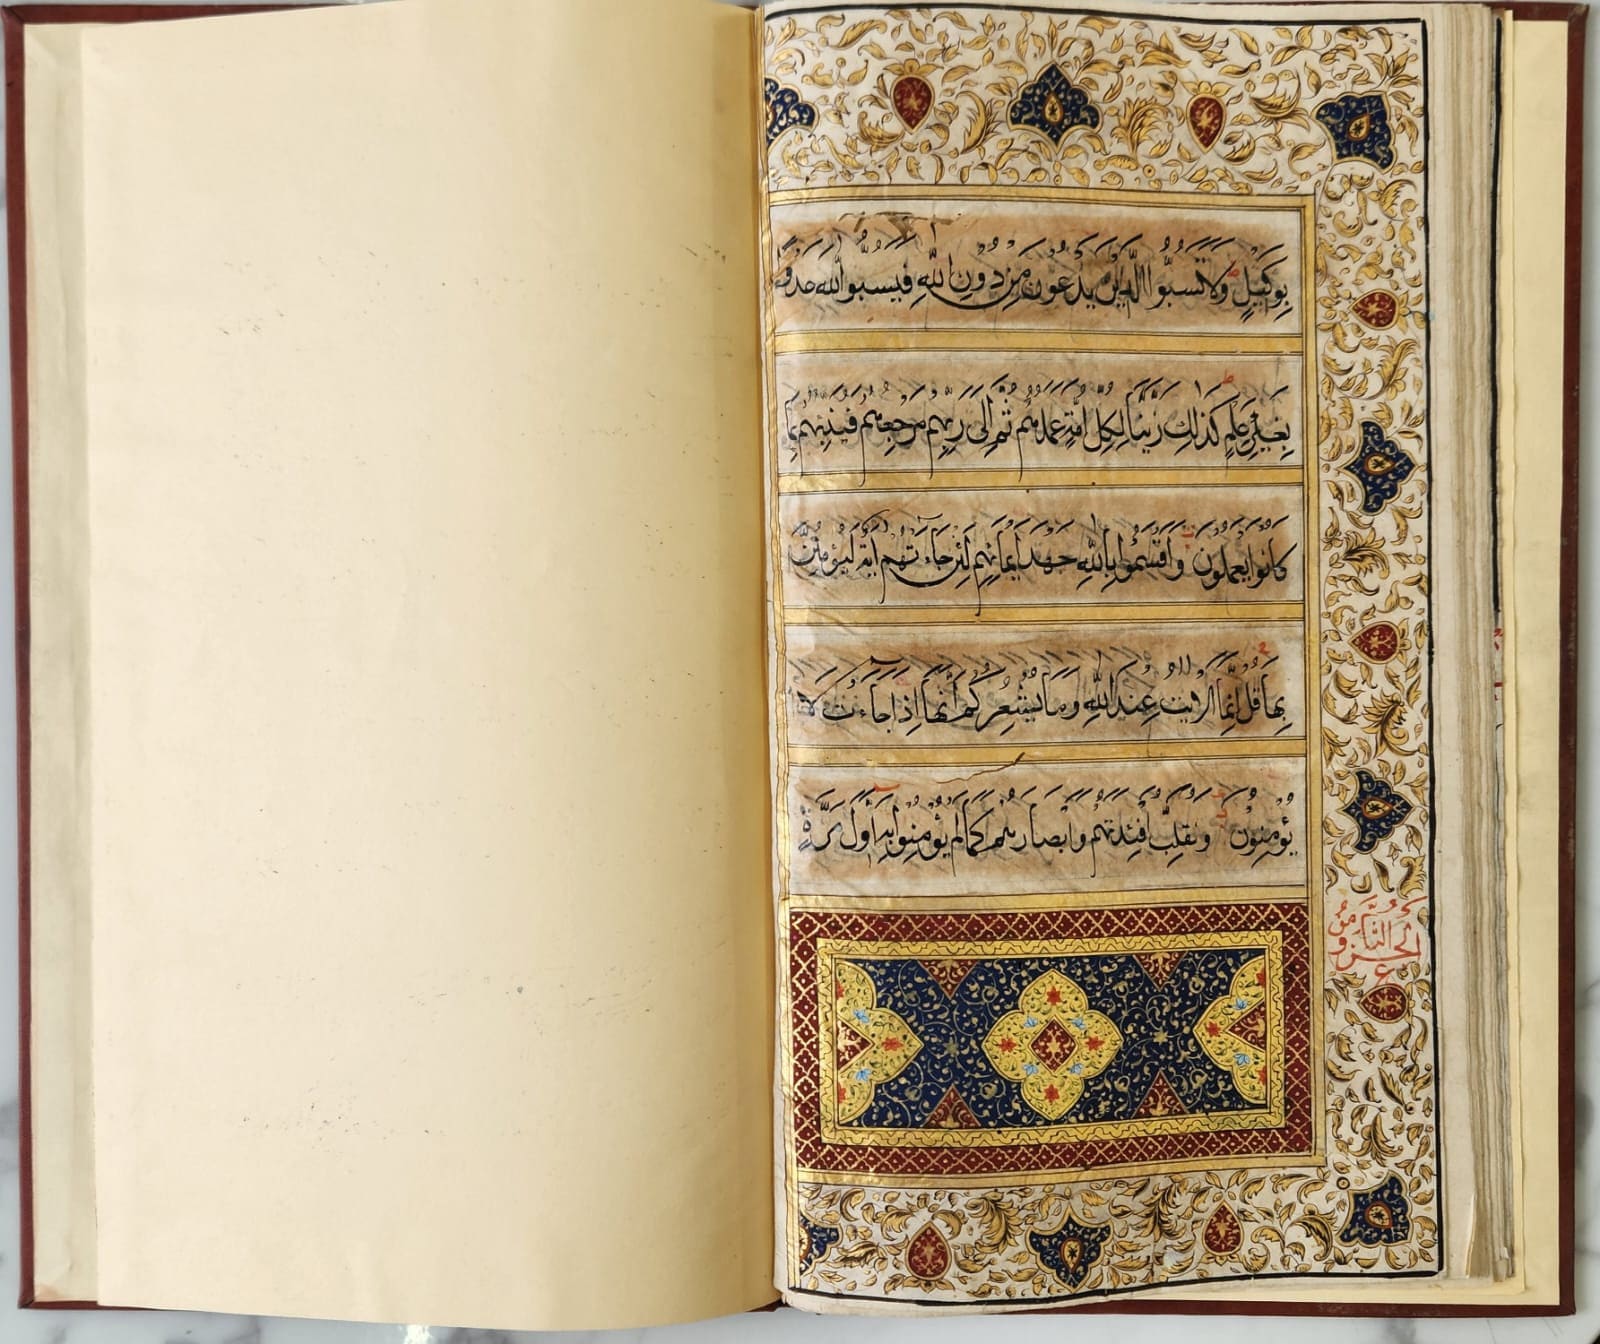 بِوَكِيْلٍ وَلَا تَسُبُّوا الَّذِيْنَ يَدْعُوْنَ مِنْ دُوْنِ اللّٰهِ فَيَسُبُّوا اللّٰهَ عَدْوًا
بِغَيْرِ عِلْمٍ كَذٰلِكَ زَيَّنَّا لِكُلِّ اُمَّةٍ عَمَلَهُمْ ثُمَّ اِلٰى رَبِّهِمْ مَرْجِعُهُمْ فَيُنَبِّئُهُمْ بِمَا
كَانُوْا يَعْمَلُوْنَ وَاَقْسَمُوْا بِاللّٰهِ جَهْدَ اَيْمَانِهِمْ لَئِنْ جَاۤءَتْهُمْ اٰيَةٌ لَيُؤْمِنُنَّ
بِهَا قُلْ اِنَّمَا الْاٰيٰتُ عِنْدَ اللّٰهِ وَمَا يُشْعِرُكُمْ اَنَّهَا اِذَا جَاۤءَتْ لَا
يُؤْمِنُوْنَ وَنُقَلِّبُ اَفْئِدَتَهُمْ وَاَبْصَارَهُمْ كَمَا لَمْ يُؤْمِنُوْا بِهٖ اَوَّلَ مَرَّةٍ